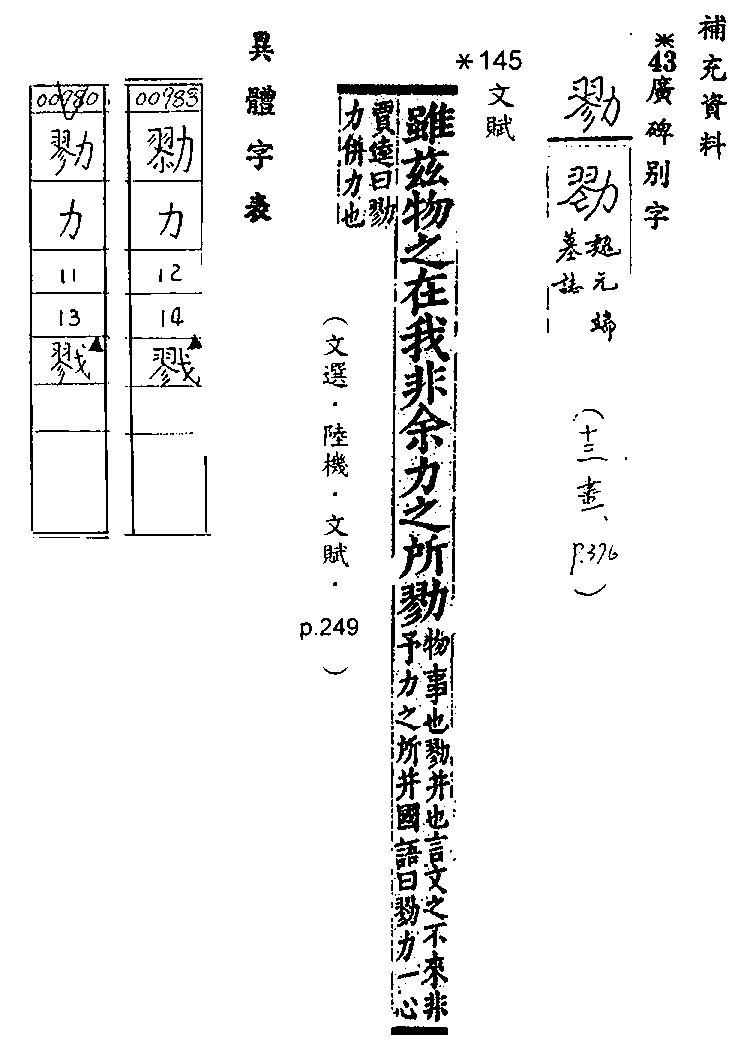 補充資料
*43廣碑別字
勠
趙元端
墓誌
(十三畫、p.376)
*145文賦
雖茲物之在我非余力之所勠
物事也勠并也言文之不來非
予力之所并國語曰勠力一心
賈逵曰勠
力併力也
(文選.陸機.文賦.p.249)
異體字表
00983
力
12
14
戮
00980
勠
力
11
13
戮